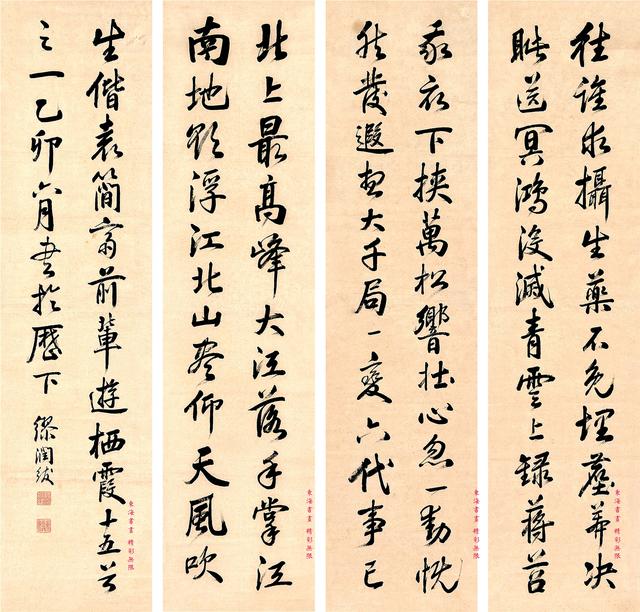 往誰求攝生藥不免埋塵莽决
眦送冥鴻没滅青雲上録蔣苕
東海書畫 精彩無限
我衣下挾萬松響壮心忽一動恍
然發遐想大千局一變六代事已
東海書畫 精彩無限
北上最高峰大江落手掌江
南地欲浮江北山盡仰天風吹
東海書畫 精彩無限
生偕袁簡齋前輩遊栖霞十五首
之一乙卯六月書於歷下
繆潤紱
東海書畫 精彩無限